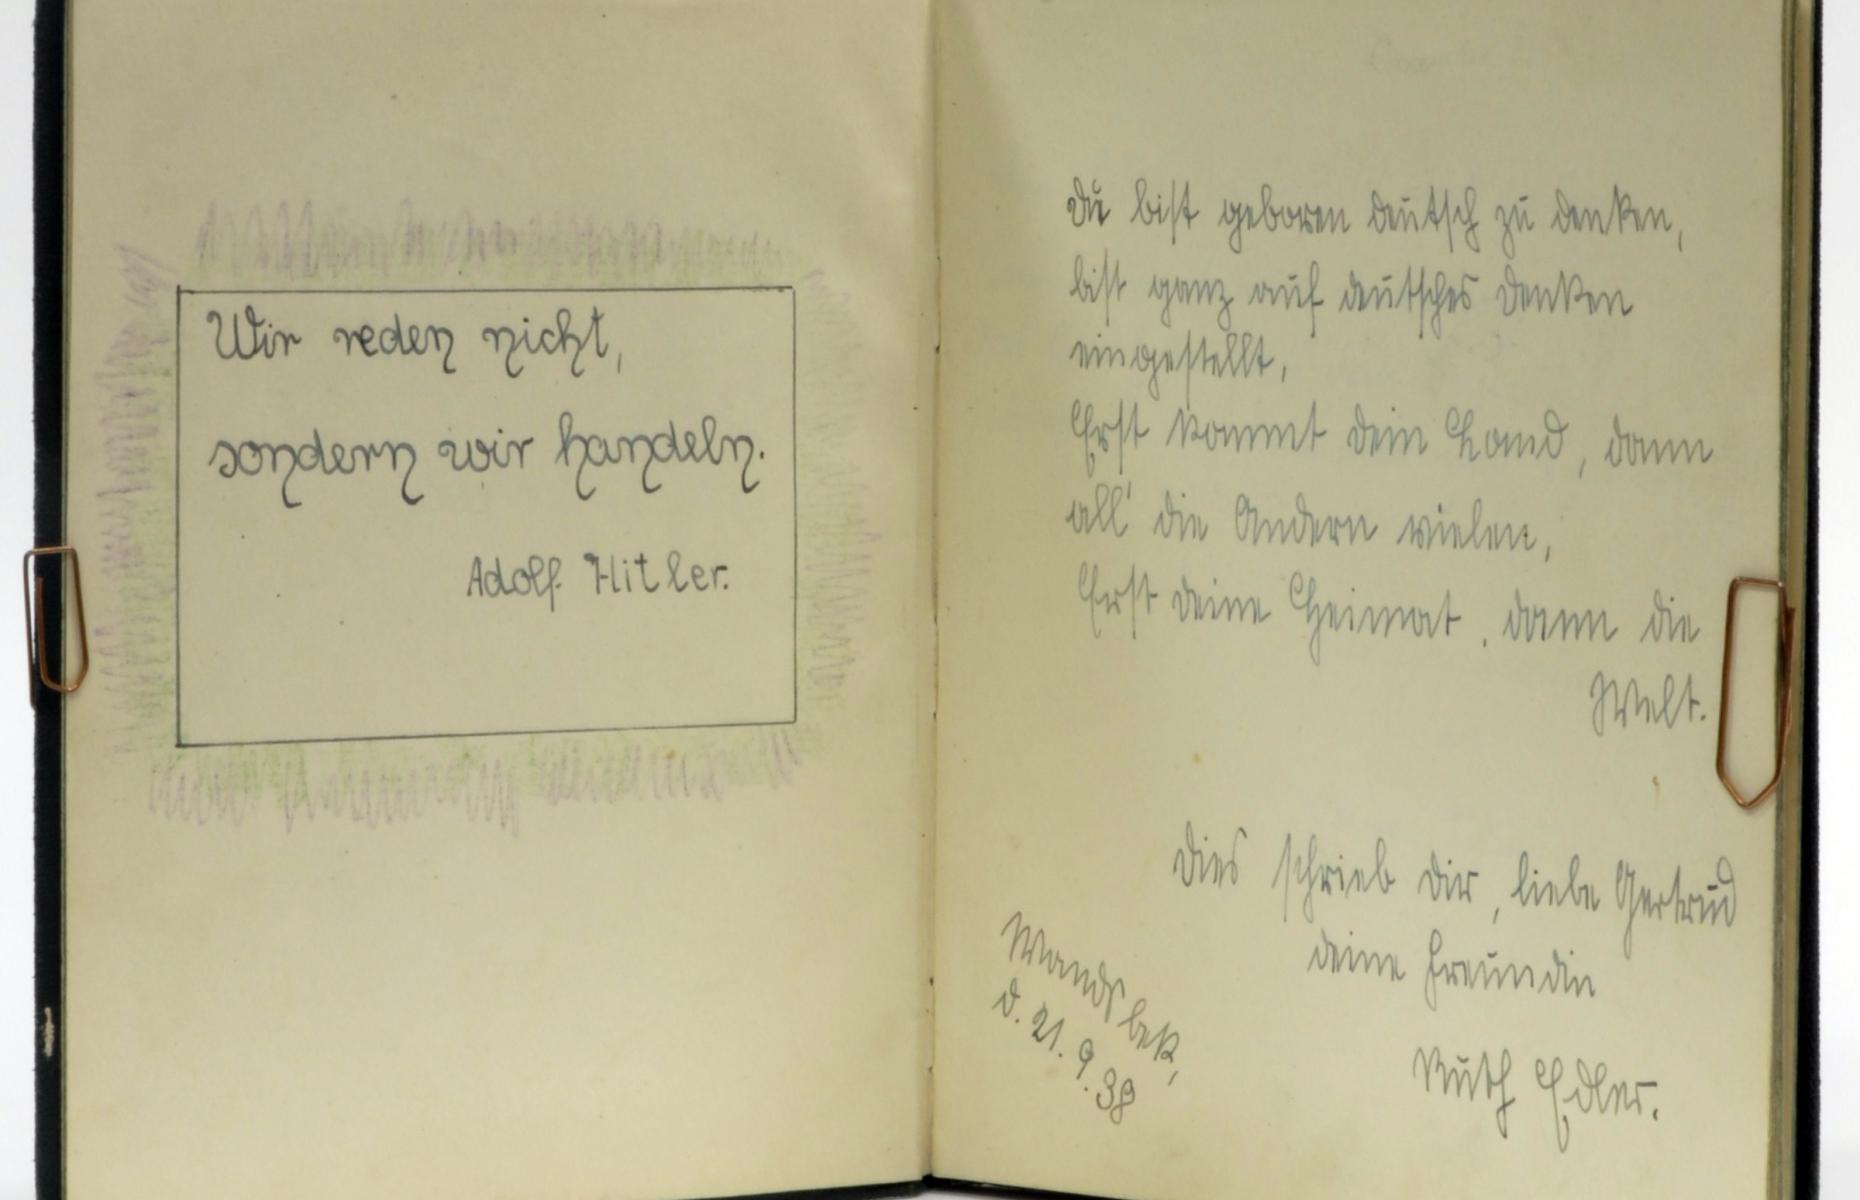 Wir reden nicht,
sondern wir handeln.
Adolf Hitler.
Du bist geboren deutsch zu denken,
bist ganz auf deutsches Denken
eingestellt,
Erst kommt dein Land, dann
all' die Andern vielen,
Erst deine Heimat, dann die
Welt.
Dies schrieb dir, liebe Gertrud
deine Freundin
Ruth Edler.
Wandsbek,
d. 21. 9. 38